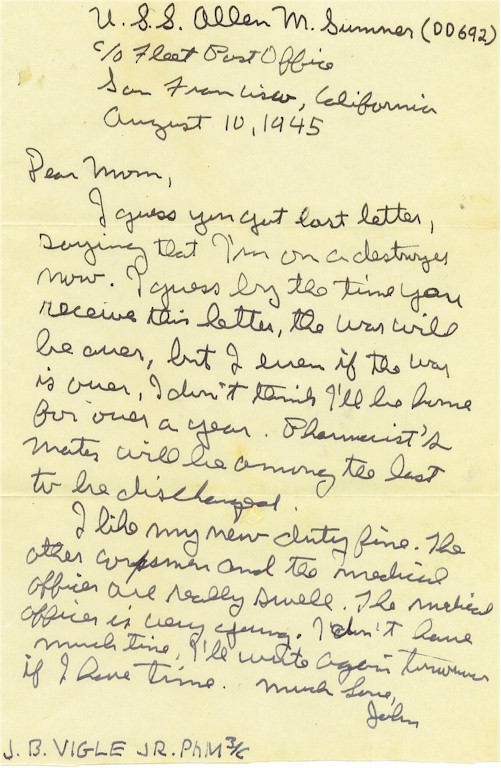 U.S.S. Allen M. Sumner (DD692)
c/o Fleet Post Office
San Francisco, California
August 10, 1945
Dear Mom,
I guess you got last letter,
saying that I'm on a destroyer
now. I guess by the time you
receive this letter, the war will
be over, but I even if the war
is over, I don't think I'll be home
for over a year. Pharmacist's
mates will be among the last
to be discharged.
I like my new duty fine. The
other corpsmen and the medical
officer are really swell. The medical
officer is very young. I don't have
much time, I'll write again tomorrow
if I have time. Much Love,
John
J. B. VIGLE JR. PhM 3/c